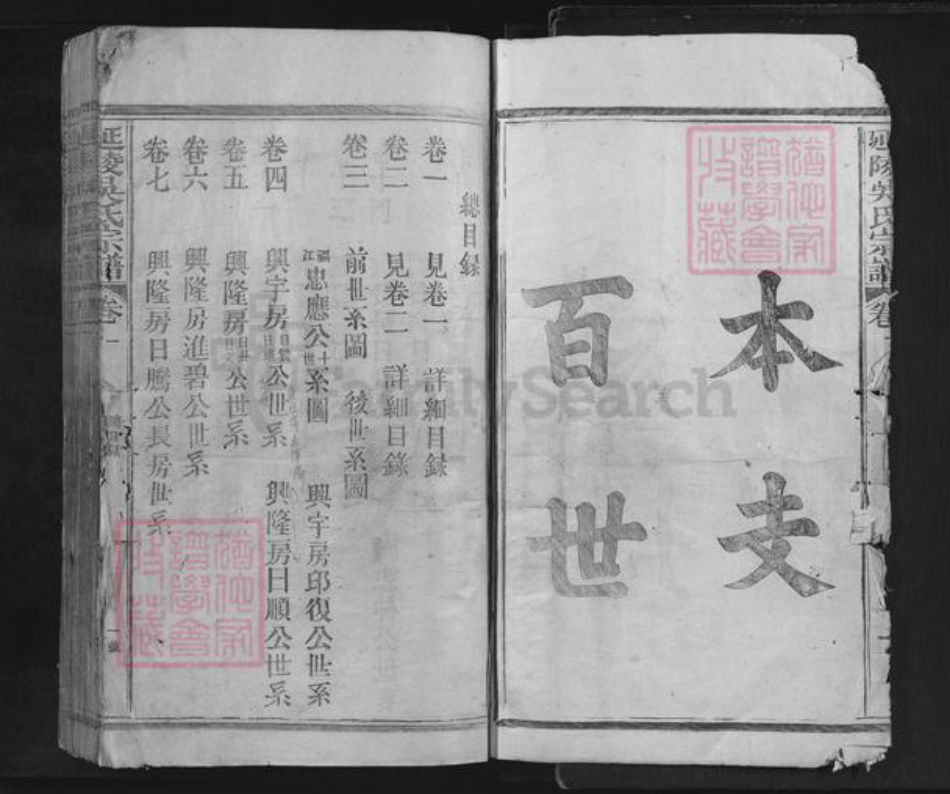 延陵吳氏宗譜
卷
本支
百世
總目錄
卷一 見卷一 詳細目録
卷二 見卷二 詳細目錄
卷三 前世系圖 後世系圖
忠應公世系圖 興宇房印復公世系
卷四 興宇房公世系 興隆房日順公世系
卷五 興隆房公世系
卷六 興隆房進碧公世系
卷七 興隆房日騰公長房世系
延陵吳氏宗譜
卷一
譜學會
收藏
譜學會
收藏
FamilySearch